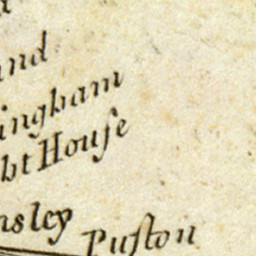 nd
ingham
ht Houſe
nsley
Puſton